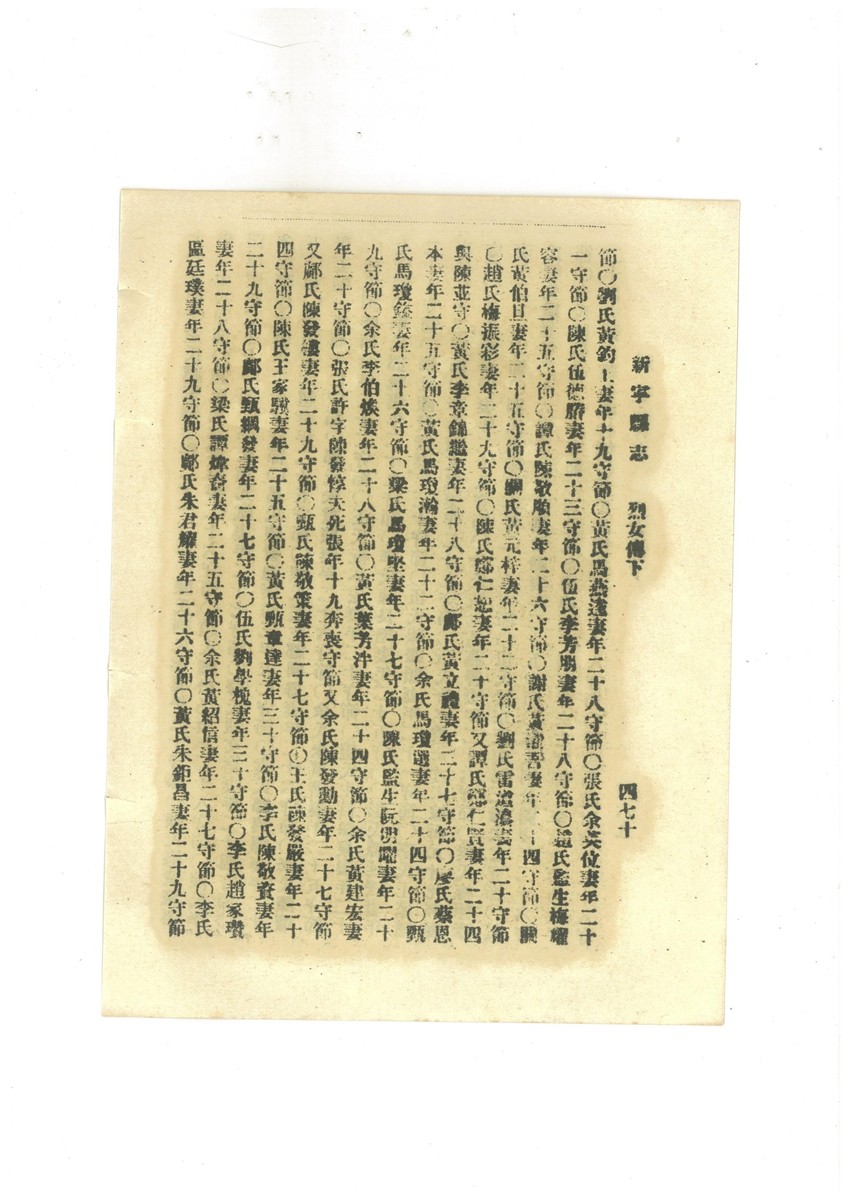 新寧縣志 烈女傳下 四七十
節〇劉氏黃鈞上妻年十九守節〇黃氏馬燕達妻年二十八守節〇張氏余英位妻年二十
一守節〇陳氏伍德濟妻年二十三守節〇伍氏李芳朋妻年二十八守節〇趙氏監生梅耀
容妻年二十五守節〇譚氏陳敬順妻年二十六守節〇謝氏黃 吾妻年二十四守節〇關
氏黃伯旦妻年二十五守節〇關氏黃元梓妻年二十二守節〇劉氏雷 濃妻年二十守節
〇趙氏梅振彩妻年二十九守節〇陳氏鄺仁恕妻年二十守節又譚氏鄺仁賢妻年二十四
與陳並守〇黃氏李章錦繼妻年二十八守節〇鄺氏黃立禮妻年二十七守節〇廖氏蔡恩
本妻年二十五守節〇黃氏馬瓊瀚妻年二十二守節〇余氏馬瓊選妻年二十四守節〇甄
氏馬瓊 妻年二十六守節〇梁氏馬瓊堅妻年二十七守節〇陳氏監生阮明曜妻年二十
九守節〇余氏李伯煥妻年二十八守節〇黃氏葉芳泮妻年二十四守節〇余氏黃建宏妻
年二十守節〇張氏許字陳發惇夫死張年十九奔喪守節又余氏陳發勳妻年二十七守節
又鄺氏陳發鏤妻年二十九守節〇甄氏陳敬策妻年二十七守節〇王氏陳發嚴妻年二十
四守節〇陳氏王家驥妻年二十五守節〇黃氏甄章達妻年三十守節〇李氏陳敬資妻年
二十九守節〇鄺氏甄綱發妻年二十七守節〇伍氏劉學槐妻年三十守節〇李氏趙家瓚
妻年二十八守節〇梁氏譚煒裔妻年二十五守節〇余氏黃紹信妻年二十七守節〇李氏
區廷璞妻年二十九守節〇鄺氏朱君 妻年二十六守節〇黃氏朱鉅昌妻年二十九守節